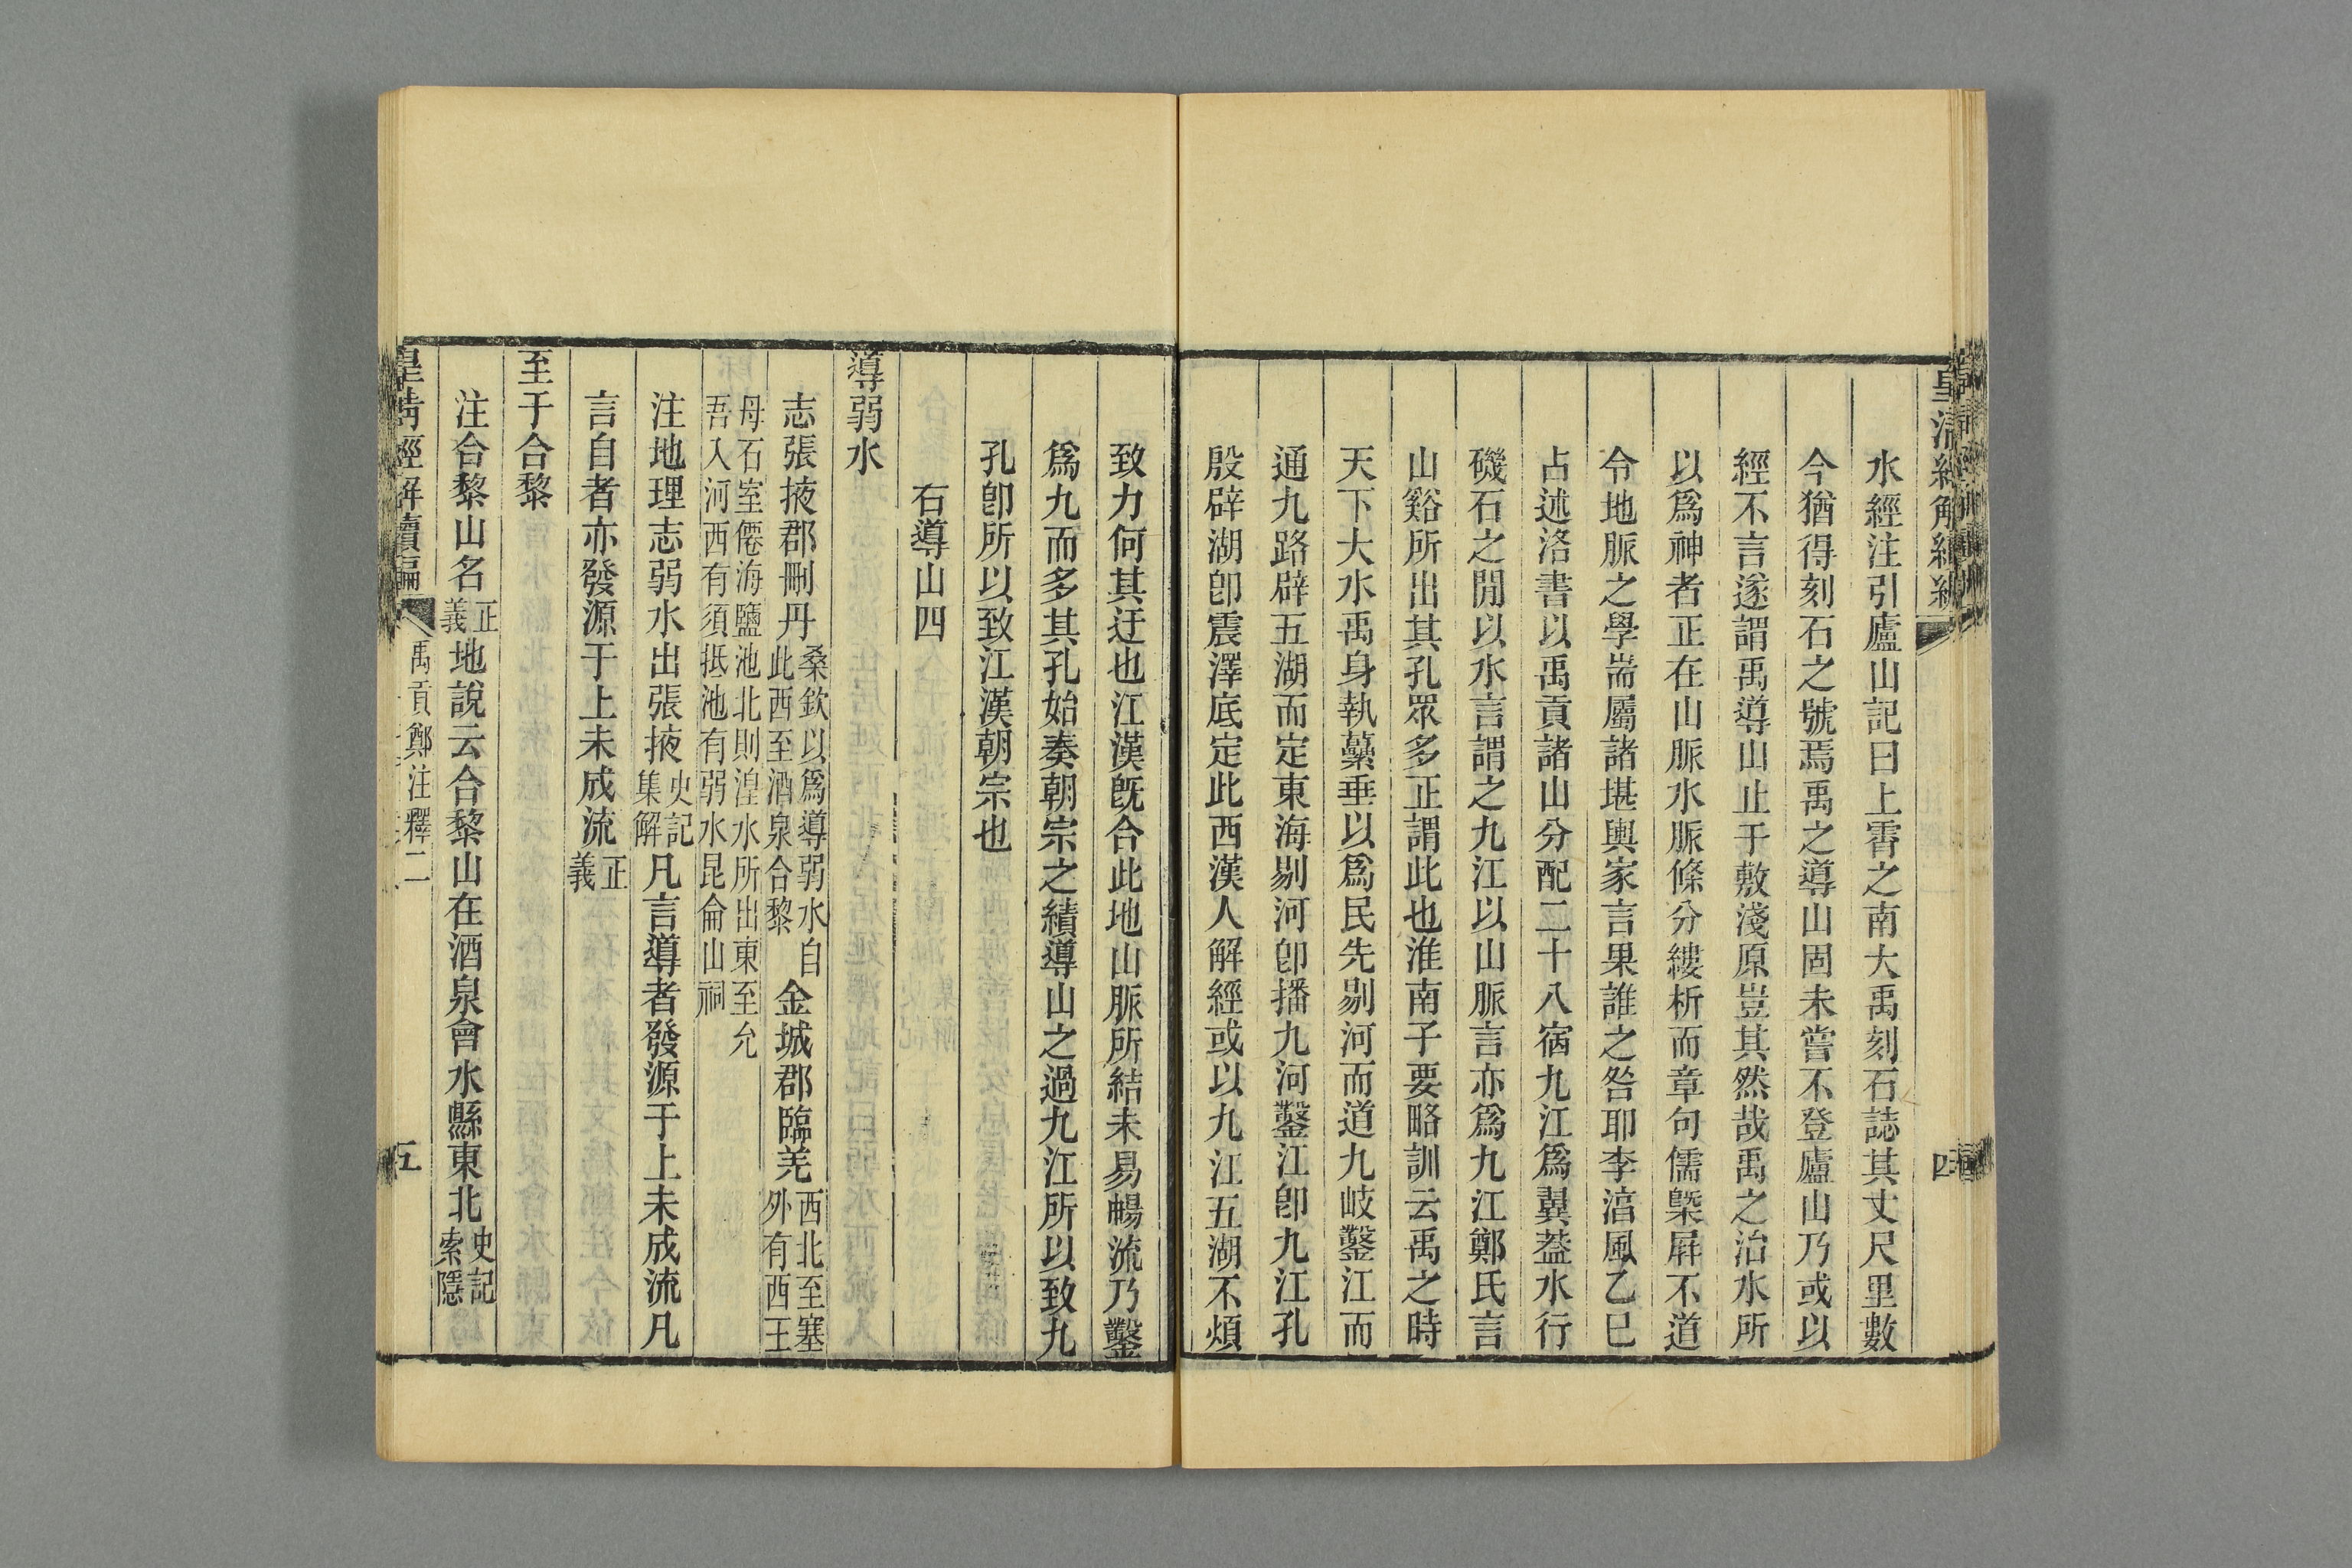 水經注引廬山記曰上霄之南大禹刻石誌其丈尺里數
今猶得刻石之號焉禹之導山固未嘗不登廬山乃或以
經不言遂謂禹導山止于敷淺原豈其然哉禹之治水所
以爲神者正在山脈水脈條分縷析而章句儒槩屏不道
令地脈之學耑屬諸堪輿家言果誰之咎耶李湻風乙巳
占述洛書以禹貢諸山分配二十八宿九江爲翼葢水行
磯石之閒以水言謂之九江以山脈言亦爲九江鄭氏言
山谿所出其孔眾多正謂此也淮南子要略訓云禹之時
天下大水禹身執虆垂以爲民先剔河而道九岐鑿江而
通九路辟五湖而定東海剔河卽播九河鑿江卽九江孔
殷辟湖卽震澤底定此西漢人解經或以九江五湖不煩
致力何其迂也江漢旣合此地山脈所結未易暢流乃鑿
爲九而多其孔始奏朝宗之績導山之過九江所以致九
孔卽所以致江漢朝宗也
右導山四
導弱水
志張掖郡刪丹桑欽以爲導弱水自此西至酒泉合黎金城郡臨羌西北至塞外有西王
母石室僊海鹽池北則湟水所出東至允吾入河西有須抵池有弱水昆侖山祠
注地理志弱水出張掖史記集解凡言導者發源于上未成流凡
言自者亦發源于上未成流正義
至于合黎
注合黎山名正義地說云合黎山在酒泉會水縣東北史記索隱
皇清經解續編
禹貢鄭注釋二
五